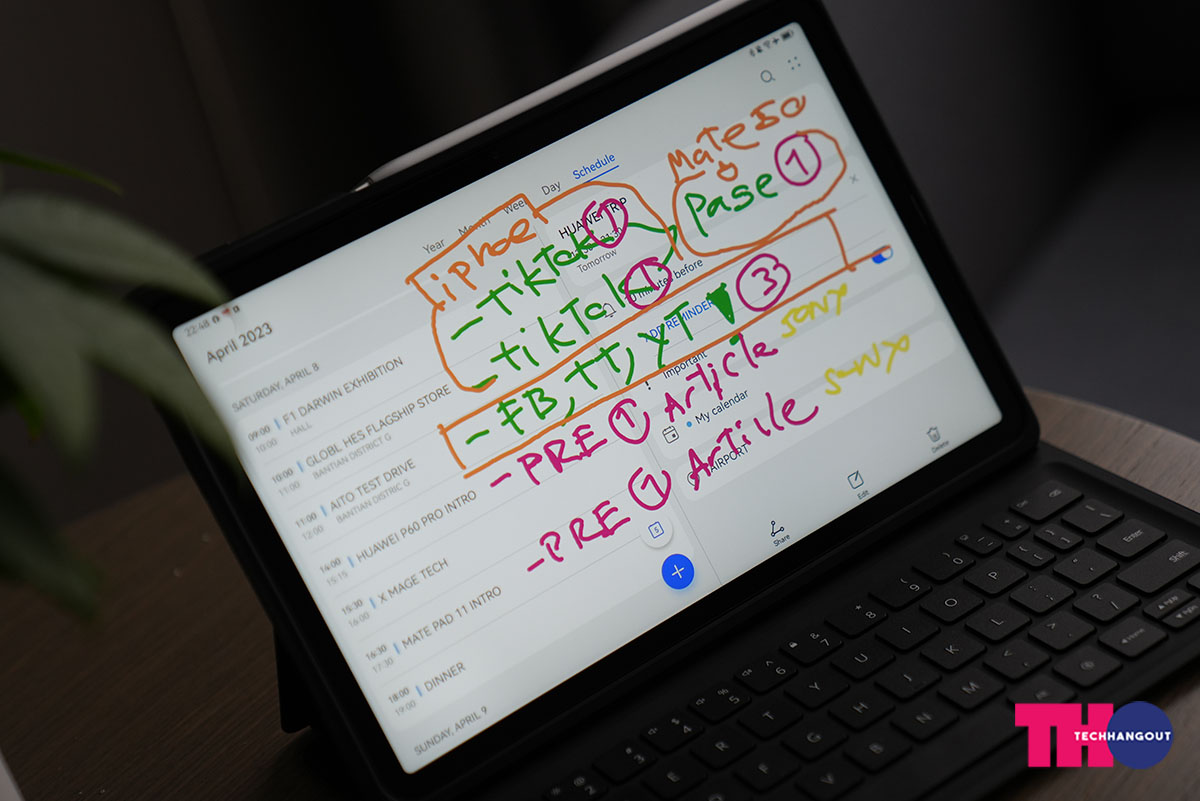 22:48
April 2023
Year Month Week Day Schedule
SATURDAY, APRIL 8
09:00 F1 DARWIN EXHIBITION
10:00 HALL
10:00 GLOBL HES FLAGSHIP STORE
11:00 BANTIAN DISTRICT G
11:00 AITO TEST DRIVE
12:00 BANTIAN DISTRICT G
14:00 HUAWEI P60 PRO INTRO
15:15
15:30 X MAGE TECH
16:00
16:30 MATE PAD 11 INTRO
17:30
18:00 DINNER
19:00
SUNDAY, APRIL 9
5
HUAWEI TRIP
Tomorrow
minutes before
REMINDER
Important
My calendar
AIRPORT
Share
Edit
Delete
Mate 50
Pase 1
iphoe
- tikTok 1
- tikTok 1
- FB, tt, YT 3
- PRE 1 Article sony
- PRE 1 Article sony
Enter
Shift
Home
PgUp
PgDn
2 3 4 5 6 7 8 9 0
E R T Y U I O P
G H J K L
V B N M
TH
TECHHANGOUT